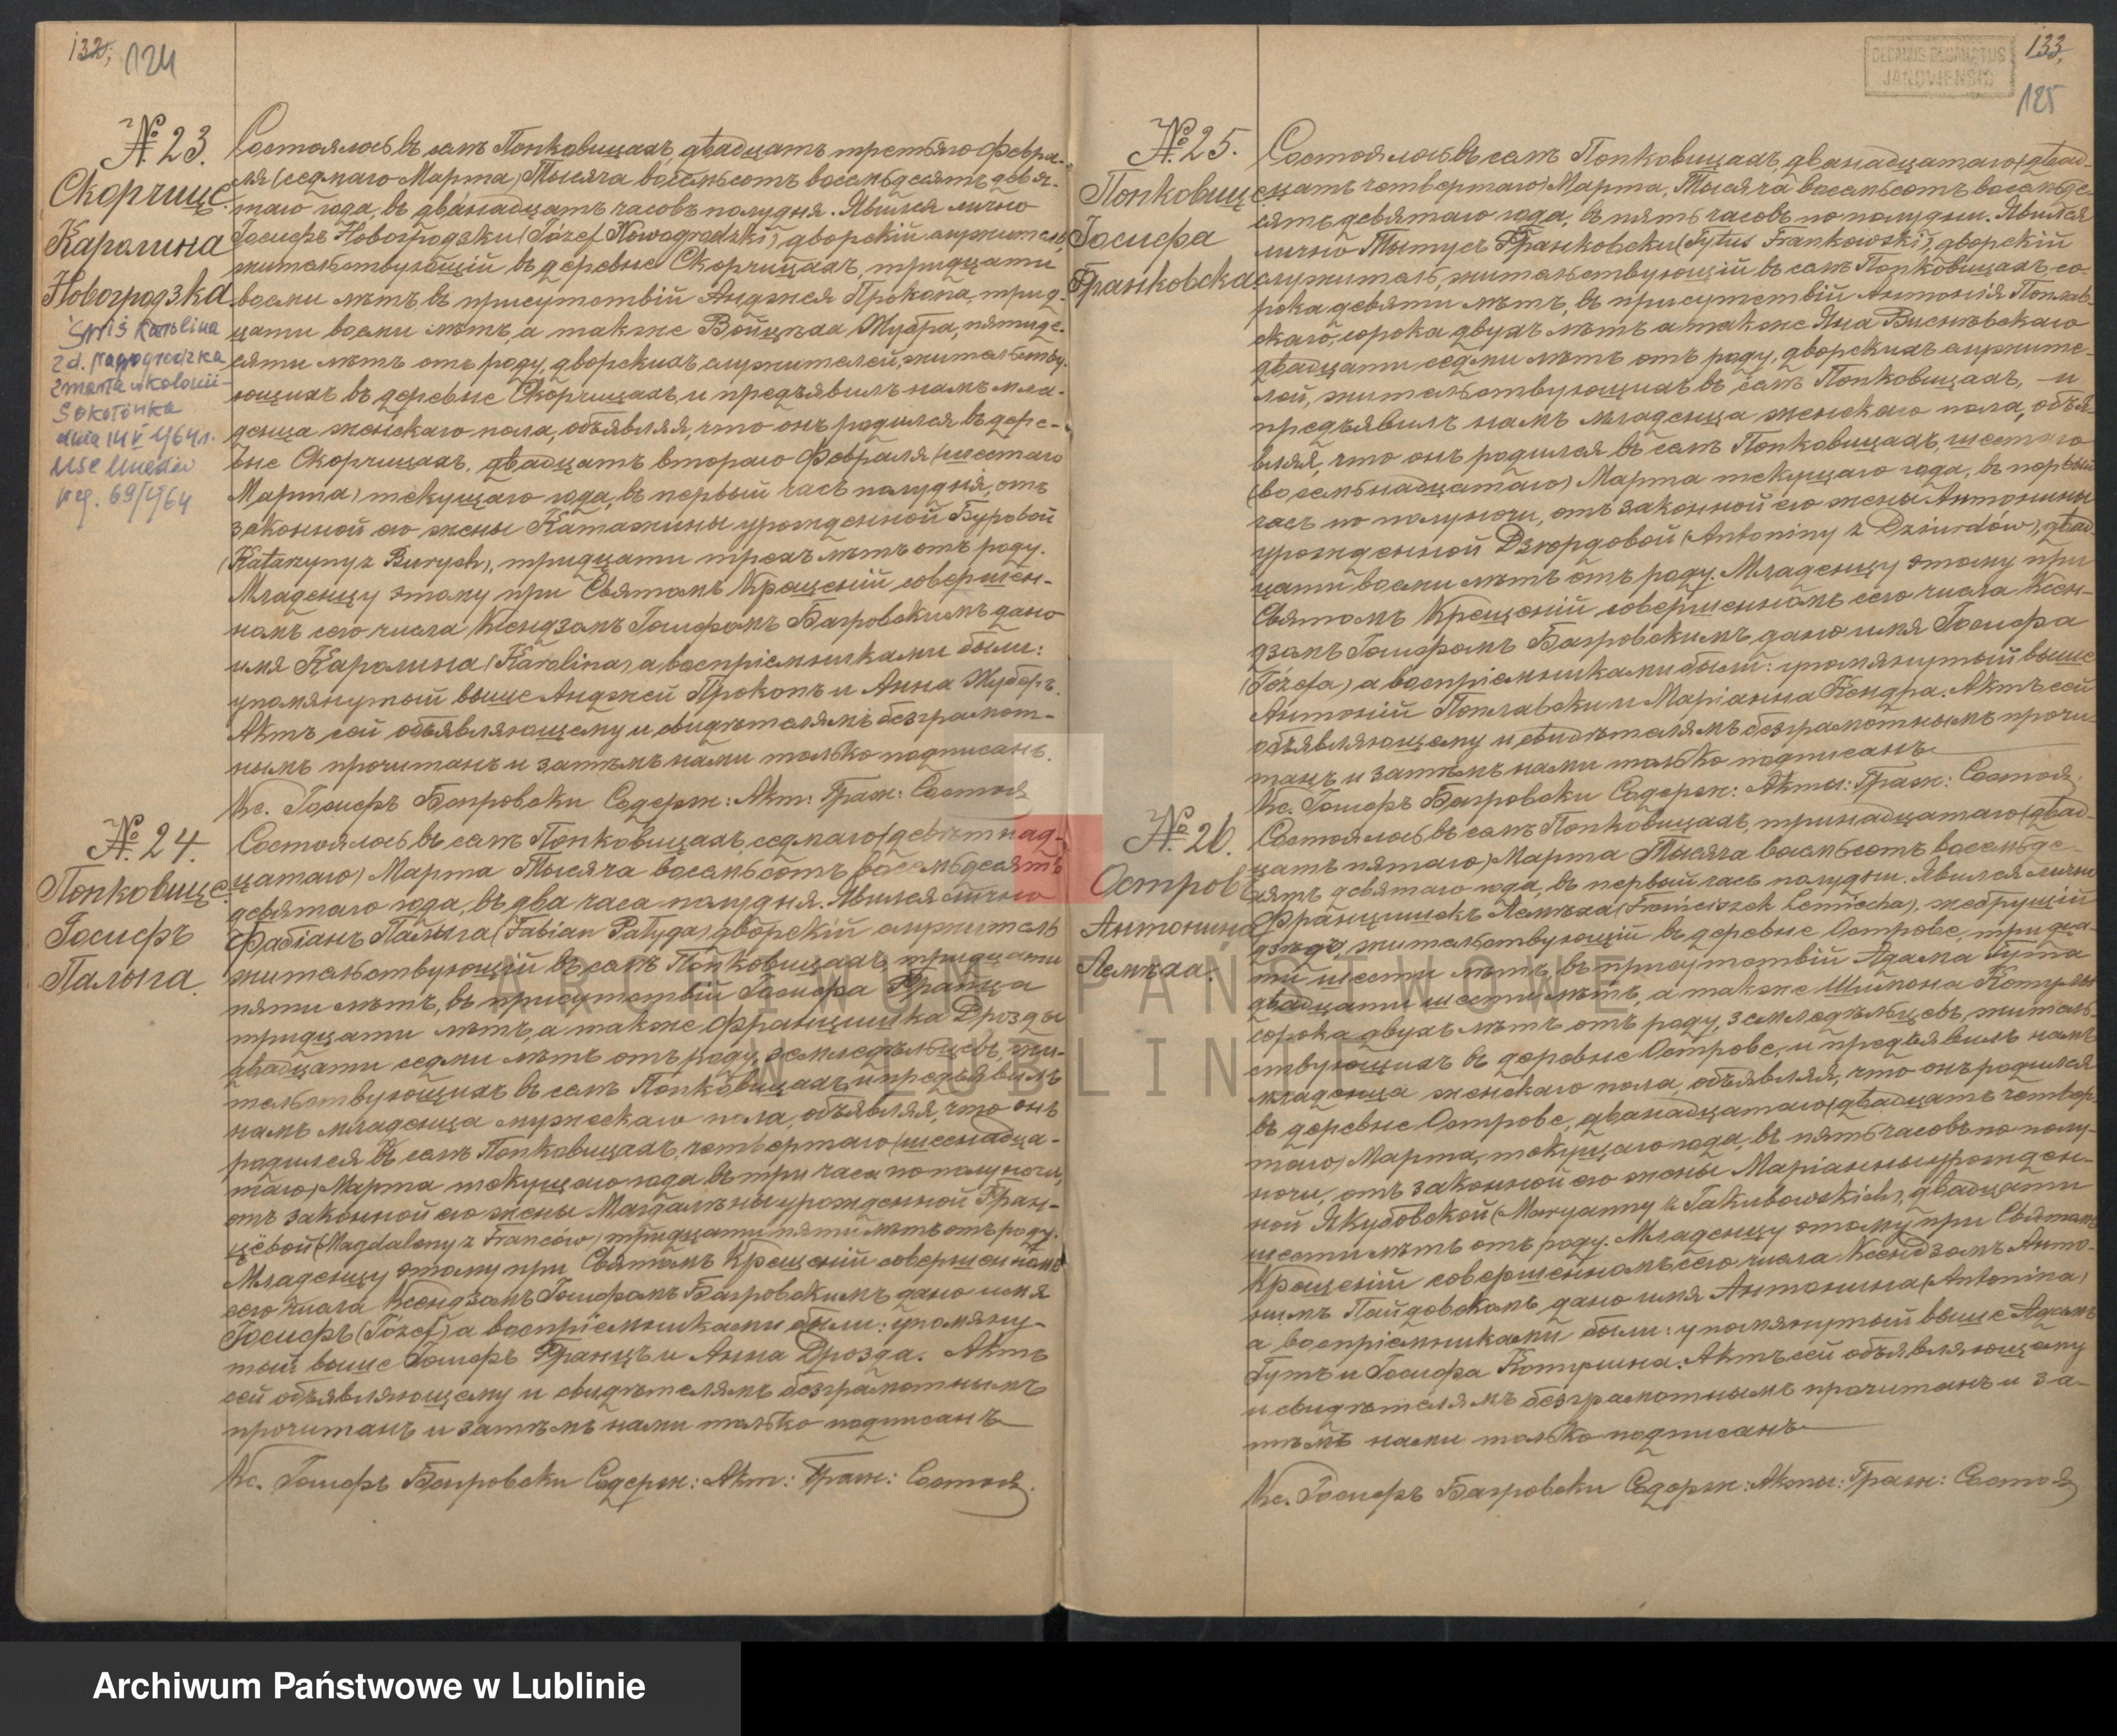 132,
124
№ 23.
Скорчице.
Каролина
Новогродзка
Śmiś Karolina
zd. Nagogrodzka
zmarła w kolonii
Sokołówka
dnia 14 V 1964 r.
USC
69/1964
Состоялось въ селѣ Попковицахъ, двадцать третьяго Февра-
ля (седмаго Марта) Тысяча восемьсотъ восемьдесятъ девя-
таго года, въ двѣнадцать часовъ полудня. Явился лично
Іосифъ Новогродзки (Józef Nowogrodzki) дворскій служитель,
жительствующій въ деревне Скорчицахъ, тридцати
восми лѣтъ, въ присутствіи Анджея Прокопа, трид-
цати восми лѣтъ, а также Войцѣха Жубра, пятиде-
сяти лѣтъ отъ роду, дворскихъ служителей, жительству-
ющихъ въ деревне Скорчицахъ и предъявилъ намъ мла-
денца женскаго пола, объявляя, что онъ родился въ дере-
вне Скорчицахъ, двадцать втораго Февраля (шестаго
Марта) текущаго года, въ первый часъ полудня, отъ
законной его жены Катажины урожденной Буровой
(Katarzyny z Burych), тридцати трехъ лѣтъ отъ роду.
Младенцу этому при Святомъ Крещеніи совершен-
номъ сего числа Ксендзомъ Іосифомъ Багровскимъ дано
имя Каролина (Karolina) а воспріемниками были:
упомянутый выше Анджей Прокопъ и Анна Жуберъ.
Актъ сей объявляющему и свидѣтелямъ безграмот-
нымъ прочитанъ и затѣмъ нами только подписанъ.
Кс. Іосифъ Багровски Содерж: Акт: Граж: Состоя
№ 24.
Попковице.
Іосифъ
Палыга.
Состоялось въ селѣ Попковицахъ, седмаго (девятнад-
цатаго) Марта Тысяча восемьсотъ восемьдесятъ
девятаго года, въ два часа полудня. Явился лично
Фабіанъ Палыга (Fabian Pałyga) дворскій служитель
жительствующій въ селѣ Попковицахъ, тридцати
пяти лѣтъ, въ присутствіи Іосифа Франца
тридцати лѣтъ, а также Францишка Дрозды
двадцати седми лѣтъ отъ роду, земледѣльцевъ, жи-
тельствующихъ въ селѣ Попковицахъ, и предъявилъ
намъ младенца мужескаго пола, объявляя, что онъ
родился въ селѣ Попковицахъ, четвертаго (шеснадца-
таго) Марта текущаго года въ три часа по полуночи,
отъ законной его жены Магдалѣны урожденной Фран-
цёвой (Magdaleny z Franców) тридцати пяти лѣтъ отъ роду.
Младенцу этому при Святомъ Крещеніи совершенномъ
сего числа Ксендзомъ Іосифомъ Багровскимъ дано имя
Іосифъ (Józef) а воспріемниками были: упомяну-
тый выше Іосифъ Францъ и Анна Дрозда. Актъ
сей объявляющему и свидѣтелямъ безграмотнымъ
прочитанъ и затѣмъ нами только подписанъ
Кс. Іосифъ Багровски Содерж: Акт: Граж: Состоя.
DECANUS DECANATUS
JANOVIENSIS
133,
125
№ 25.
Попковице
Іосифа
Франковска
Состоялось въ селѣ Попковицахъ, двѣнадцатаго (двад-
цать четвертаго) Марта, Тысяча восемьсотъ восемьде-
сятъ девятаго года, въ пять часовъ по полудни. Явился
лично Тытусъ Франковски (Tytus Frankowski), дворскій
служитель, жительствующій въ селѣ Попковицахъ, со-
рока девяти лѣтъ, въ присутствіи Антонія Поплав-
скаго, сорока двухъ лѣтъ а также Яна Виснѣвскаго
двадцати седми лѣтъ отъ роду, дворскихъ служите-
лей, жительствующихъ въ селѣ Попковицахъ, и
предъявилъ намъ младенца женскаго пола, объя-
вляя, что онъ родился въ селѣ Попковицахъ, шестаго
(восемьнадцатаго) Марта текущаго года, въ первый
часъ по полуночи, отъ законной его жены Антонины
урожденной Дзюрдовой (Antoniny z Dziurdów), двад-
цати восми лѣтъ отъ роду. Младенцу этому при
Святомъ Крещеніи совершенномъ сего числа Ксен-
дзомъ Іосифомъ Багровскимъ, дано имя Іосифа
(Józefa) а воспріемниками были: упомянутый выше
Антоній Поплавски и Маріанна Кендра. Актъ сей
объявляющему и свидѣтелямъ безграмотнымъ прочи-
танъ и затѣмъ нами только подписанъ
Кс. Іосифъ Багровски Содерж: Акты: Граж: Состоя.
№ 26.
Островъ
Антонина
Лемѣха.
Состоялось въ селѣ Попковицахъ, тринадцатаго (двад-
цать пятаго) Марта Тысяча восемьсотъ восемьде-
сятъ девятаго года, въ первый часъ полудни. Явился лично
Францишекъ Лемѣха (Franciszek Lemiecha), жебрущій
дзядъ, жительствующій въ деревне Острове, тридца-
ти шести лѣтъ, въ присутствіи Адама Гута
двадцати шести лѣтъ, а также Шимона Котулы
сорока двухъ лѣтъ отъ роду, земледѣльцевъ, житель-
ствующихъ въ деревне Острове, и предъявилъ намъ
младенца женскаго пола, объявляя, что онъ родился
въ деревне Острове, двѣнадцатаго (двадцать четвер-
таго) Марта, текущаго года, въ пять часовъ по полу-
ночи, отъ законной его жены Маріанны урожден-
ной Якубовской (Maryanny z Jakubowskich), двадцати
шести лѣтъ отъ роду. Младенцу этому при Святомъ
Крещеніи совершенномъ сего числа Ксендзомъ Анто-
нимъ Пайдовскомъ, дано имя Антонина (Antonina)
а воспріемниками были: упомянутый выше Адамъ
Гутъ и Іосифа Котулина. Актъ сей объявляющему
и свидѣтелямъ безграмотнымъ прочитанъ и за-
тѣмъ нами только подписанъ
Кс. Іосифъ Багровски Содерж: Акты: Граж: Состоя
ARCHIWUM PAŃSTWOWE
W LUBLINIE
Archiwum Państwowe w Lublinie